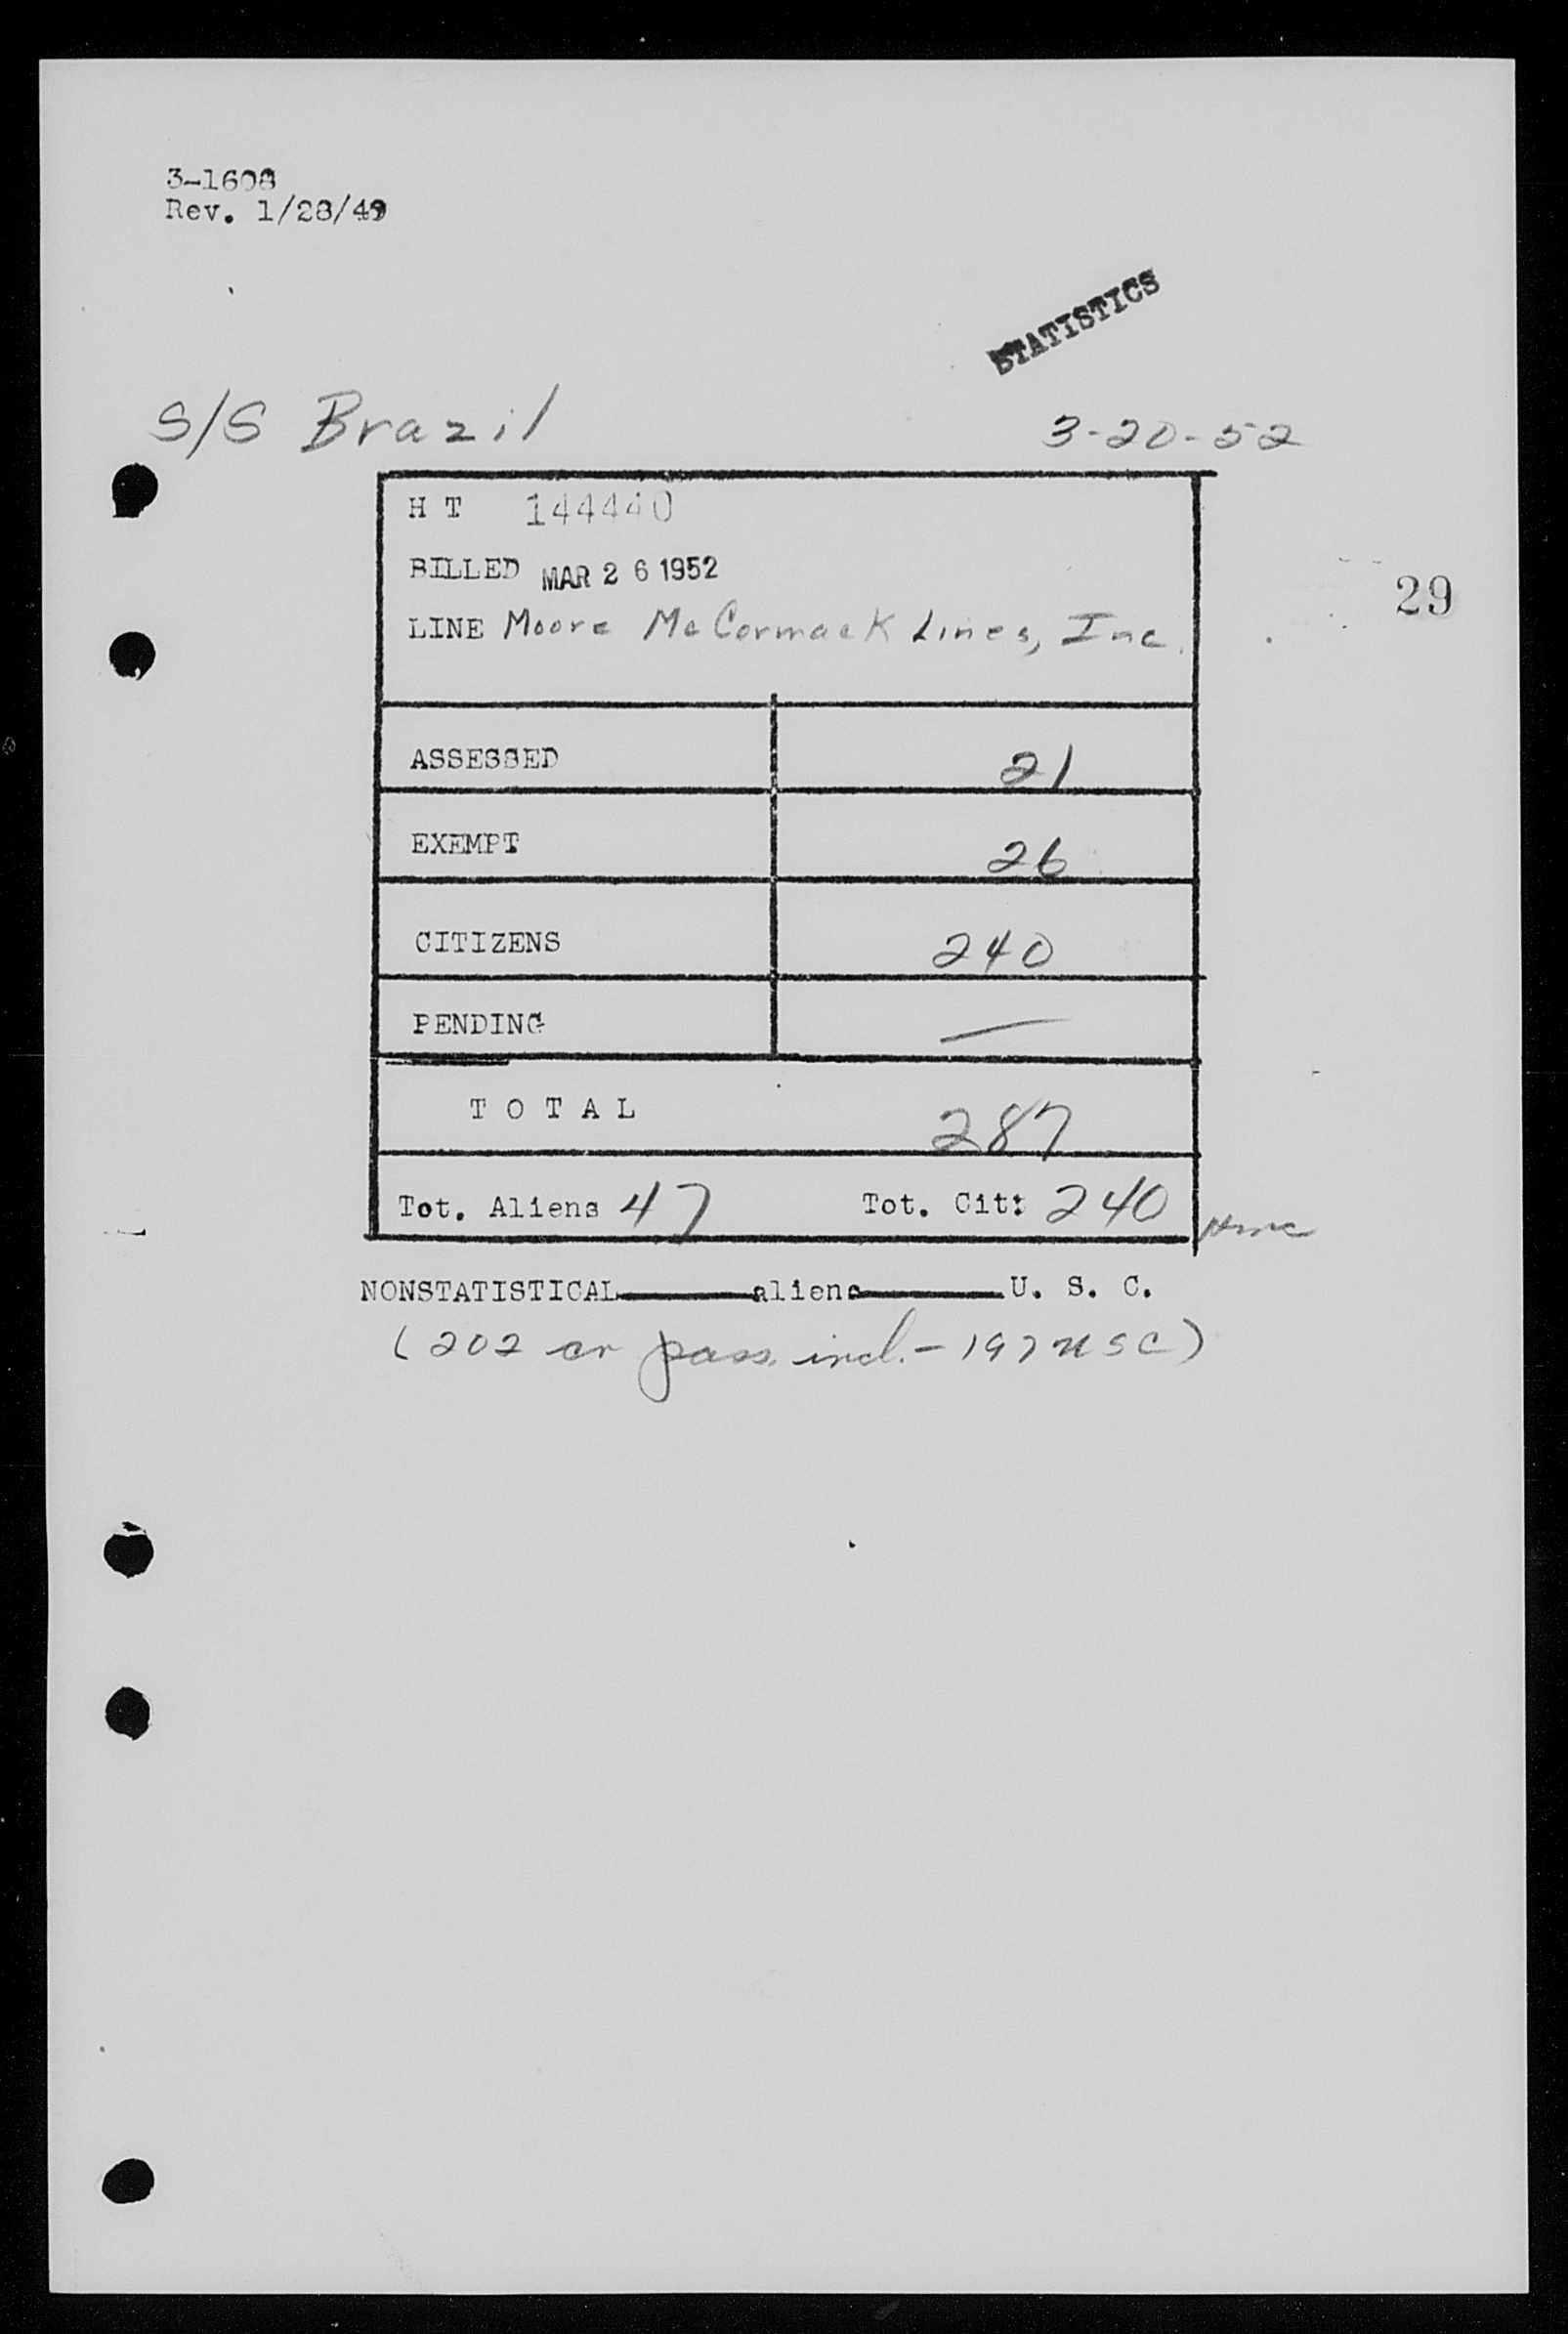 3-1608
Rev. 1/28/49
STATISTICS
S/S Brazil 3-20-52
H T 144440
BILLED MAR 26 1952
29
LINE Moore McCormack Lines, Inc.
ASSESSED 21
EXEMPT 26
CITIZENS 240
PENDING —
T O T A L 287
Tot. Aliens 47 Tot. Cit: 240
NONSTATISTICAL______aliens______U. S. C.
(202 cr pass. incl. - 197 USC)